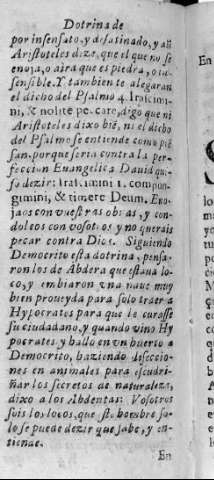 Dotrina de
por insensato, y desatinado, y aũ
Aristoteles dize, que el que no se
enoja, o aira que es piedra, o in-
sensible. Y tambien te alegaran
el dicho del Psalmo 4. Irascimi-
ni, & nolite peccare, digo que ni
Aristoteles dixo biẽ, ni el dicho
del Psalmo se entiende como piẽ
san, porque seria contra la per-
feccion Euangelica Dauid que-
so dezir: Irascimini i. compun-
gimini, & timere Deum. Eno-
jaos con vuestras obras, y con-
doleos con vosotros y no querais
pecar contra Dios. Siguiendo
Democrito esta dotrina, pensa-
ron los de Abdera que estaua lo-
co, y embiaron vna naue muy
bien proueyda para solo traer a
Hypocrates para que le curasse
su ciudadano, y quando vino Hy
pocrates y hallo en vn huerto a
Democrito, haziendo deseccio-
nes en animales para escudri-
ñar los secretos de naturaleza,
dixo a los Abdentas: Vosotros
sois los locos, que este hombre so-
lo se puede dezir que sabe, y en-
tiende.
En
En
S